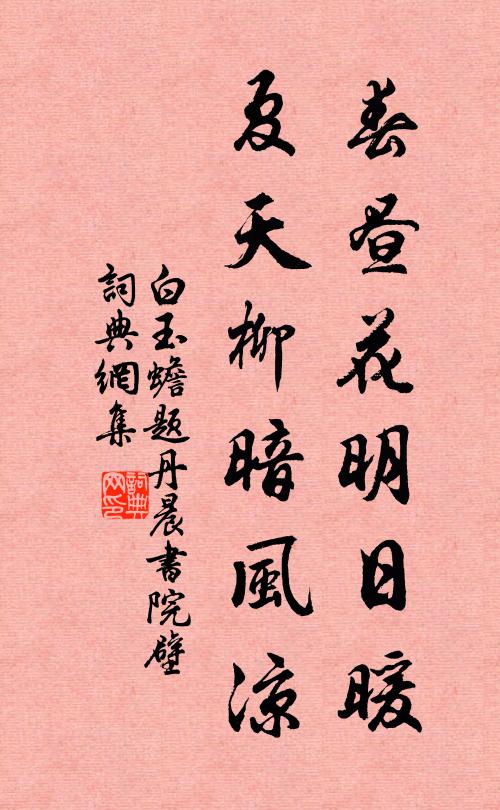 春晝花明日暖
夏天柳暗風涼
白玉蟾題丹晨書院壁
詞典網集
詞典网印